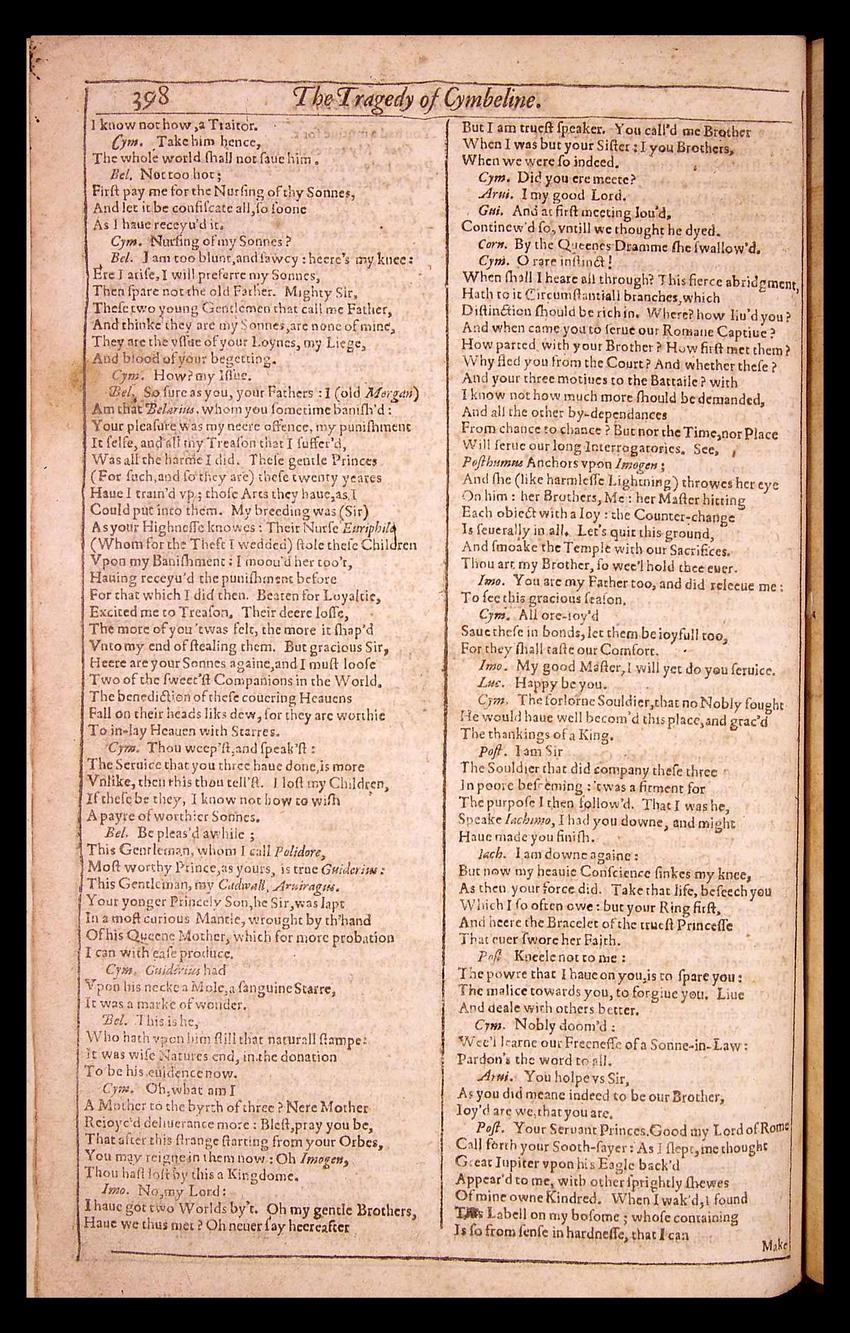 398
The Tragedy of Cymbeline.
I know not how, a Traitor.
Cym. Take him hence,
The whole world ſhall not ſaue him.
Bel. Not too hot;
Firſt pay me for the Nurſing of thy Sonnes,
And let it be confiſcate all, ſo ſoone
As I haue receyu'd it.
Cym. Nurſing of my Sonnes?
Bel. I am too blunt, and ſawcy: heere's my knee:
Ere I ariſe, I will preferre my Sonnes,
Then ſpare not the old Father. Mighty Sir,
Theſe two young Gentlemen that call me Father,
And thinke they are my Sonnes, are none of mine,
They are the yſſue of your Loynes, my Liege,
And blood of your begetting.
Cym. How? my Iſſue.
Bel. So ſure as you, your Fathers: I (old Morgan)
Am that Belarius, whom you ſometime baniſh'd:
Your pleaſure was my neere offence, my puniſhment
It ſelfe, and all my Treaſon that I ſuffer'd,
Was all the harme I did. Theſe gentle Princes
(For ſuch, and ſo they are) theſe twenty yeares
Haue I train'd vp; thoſe Arts they haue, as I
Could put into them. My breeding was (Sir)
As your Highneſſe knowes: Their Nurſe Euriphile
(Whom for the Theft I wedded) ſtole theſe Children
Vpon my Baniſhment: I moou'd her too't,
Hauing receyu'd the puniſhment before
For that which I did then. Beaten for Loyaltie,
Excited me to Treaſon. Their deere loſſe,
The more of you 'twas felt, the more it ſhap'd
Vnto my end of ſtealing them. But gracious Sir,
Heere are your Sonnes againe, and I muſt looſe
Two of the ſweet'ſt Companions in the World.
The benediction of theſe couering Heauens
Fall on their heads liks dew, for they are worthie
To in-lay Heauen with Starres.
Cym. Thou weep'ſt, and ſpeak'ſt:
The Seruice that you three haue done, is more
Vnlike, then this thou tell'ſt. I loſt my Children,
If theſe be they, I know not how to wiſh
A payre of worthier Sonnes.
Bel. Be pleas'd awhile;
This Gentleman, whom I call Polidore,
Moſt worthy Prince, as yours, is true Guiderius:
This Gentleman, my Cadwall, Aruiragus.
Your yonger Princely Son, he Sir, was lapt
In a moſt curious Mantle, wrought by th'hand
Of his Queene Mother, which for more probation
I can with eaſe produce.
Cym. Guiderius had
Vpon his necke a Mole, a ſanguine Starre,
It was a marke of wonder.
Bel. This is he,
Who hath vpon him ſtill that naturall ſtampe:
It was wiſe Natures end, in the donation
To be his euidence now.
Cym. Oh, what am I
A Mother to the byrth of three? Nere Mother
Reioyc'd deliuerance more: Bleſt, pray you be,
That after this ſtrange ſtarting from your Orbes,
You may reigne in them now: Oh Imogen,
Thou haſt loſt by this a Kingdome.
Imo. No, my Lord:
I haue got two Worlds by't. Oh my gentle Brothers,
Haue we thus met? Oh neuer ſay heereafter
But I am trueſt ſpeaker. You call'd me Brother
When I was but your Siſter: I you Brothers,
When we were ſo indeed.
Cym. Did you ere meete?
Arui. I my good Lord.
Gui. And at firſt meeting lou'd,
Continew'd ſo, vntill we thought he dyed.
Corn. By the Queenes Dramme ſhe ſwallow'd.
Cym. O rare inſtinct!
When ſhall I heare all through? This fierce abridgment,
Hath to it Circumſtantiall branches, which
Diſtinction ſhould be rich in. Where? how liu'd you?
And when came you to ſerue our Romane Captiue?
How parted with your Brother? How firſt met them?
Why fled you from the Court? And whether theſe?
And your three motiues to the Battaile? with
I know not how much more ſhould be demanded,
And all the other by-dependances
From chance to chance? But nor the Time, nor Place
Will ſerue our long Interrogatories. See,
Poſthumus Anchors vpon Imogen;
And ſhe (like harmleſſe Lightning) throwes her eye
On him: her Brothers, Me: her Maſter hitting
Each obiect with a Ioy: the Counter-change
Is ſeuerally in all. Let's quit this ground,
And ſmoake the Temple with our Sacrifices.
Thou art my Brother, ſo wee'l hold thee euer.
Imo. You are my Father too, and did releeue me:
To ſee this gracious ſeaſon.
Cym. All ore-ioy'd
Saue theſe in bonds, let them be ioyfull too,
For they ſhall taſte our Comfort.
Imo. My good Maſter, I will yet do you ſeruice.
Luc. Happy be you.
Cym. The forlorne Souldier, that no Nobly fought
He would haue well becom'd this place, and grac'd
The thankings of a King.
Poſt. I am Sir
The Souldier that did company theſe three
In poore beſeeming: 'twas a fitment for
The purpoſe I then follow'd. That I was he,
Speake Iachimo, I had you downe, and might
Haue made you finiſh.
Iach. I am downe againe:
But now my heauie Conſcience ſinkes my knee,
As then your force did. Take that life, beſeech you
Which I ſo often owe: but your Ring firſt,
And heere the Bracelet of the trueſt Princeſſe
That euer ſwore her Faith.
Poſt. Kneele not to me:
The powre that I haue on you, is to ſpare you:
The malice towards you, to forgiue you. Liue
And deale with others better.
Cym. Nobly doom'd:
Wee'l learne our Freeneſſe of a Sonne-in-Law:
Pardon's the word to all.
Arui. You holpe vs Sir,
As you did meane indeed to be our Brother,
Ioy'd are we, that you are.
Poſt. Your Seruant Princes. Good my Lord of Rome
Call forth your Sooth-ſayer: As I ſlept, me thought
Great Iupiter vpon his Eagle back'd
Appear'd to me, with other ſprightly ſhewes
Of mine owne Kindred. When I wak'd, I found
This Labell on my boſome; whoſe containing
Is ſo from ſenſe in hardneſſe, that I can
Make